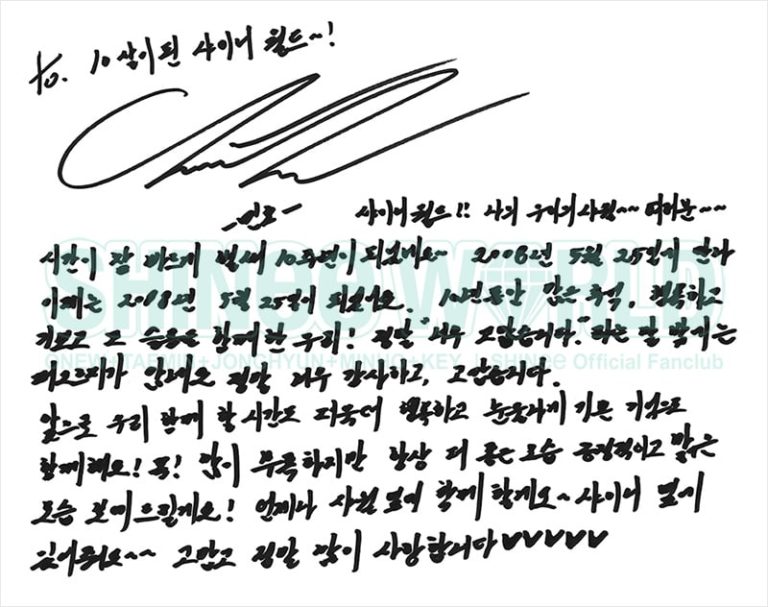 to. 10살이 된 샤이니 월드~!
-민호- 샤이니 월드!! 나의 우리의 샤월~~ 여러분~~
시간이 참 빠르게 벌써 10주년이 되었네요~ 2008년 5월 25일이 엊그제
이제는 2018년 5월 25일이 되었어요. 10년동안 많은 추억, 행복하고
기쁘고 또 슬픔을 함께한 우리! 정말 "너무 고맙습니다." 라는 말 밖에는
떠오르지가 않네요 정말 너무 감사하고, 고맙습니다.
앞으로 우리 함께 할 시간도 더욱더 행복하고 눈부시게 기쁜 기억으로
함께해요! 꼭! 많이 부족하지만 항상 더 좋은 모습 긍정적이고 밝은
모습 보여드릴게요! 언제나 샤월 옆에 함께 할게요~ 샤이니 옆에
있어줘요~~ 고맙고 정말 많이 사랑합니다♥♥♥♥♥
SHINee WORLD
ONEW+TAEMIN+JONGHYUN+MINHO+KEY | SHINee Official Fanclub